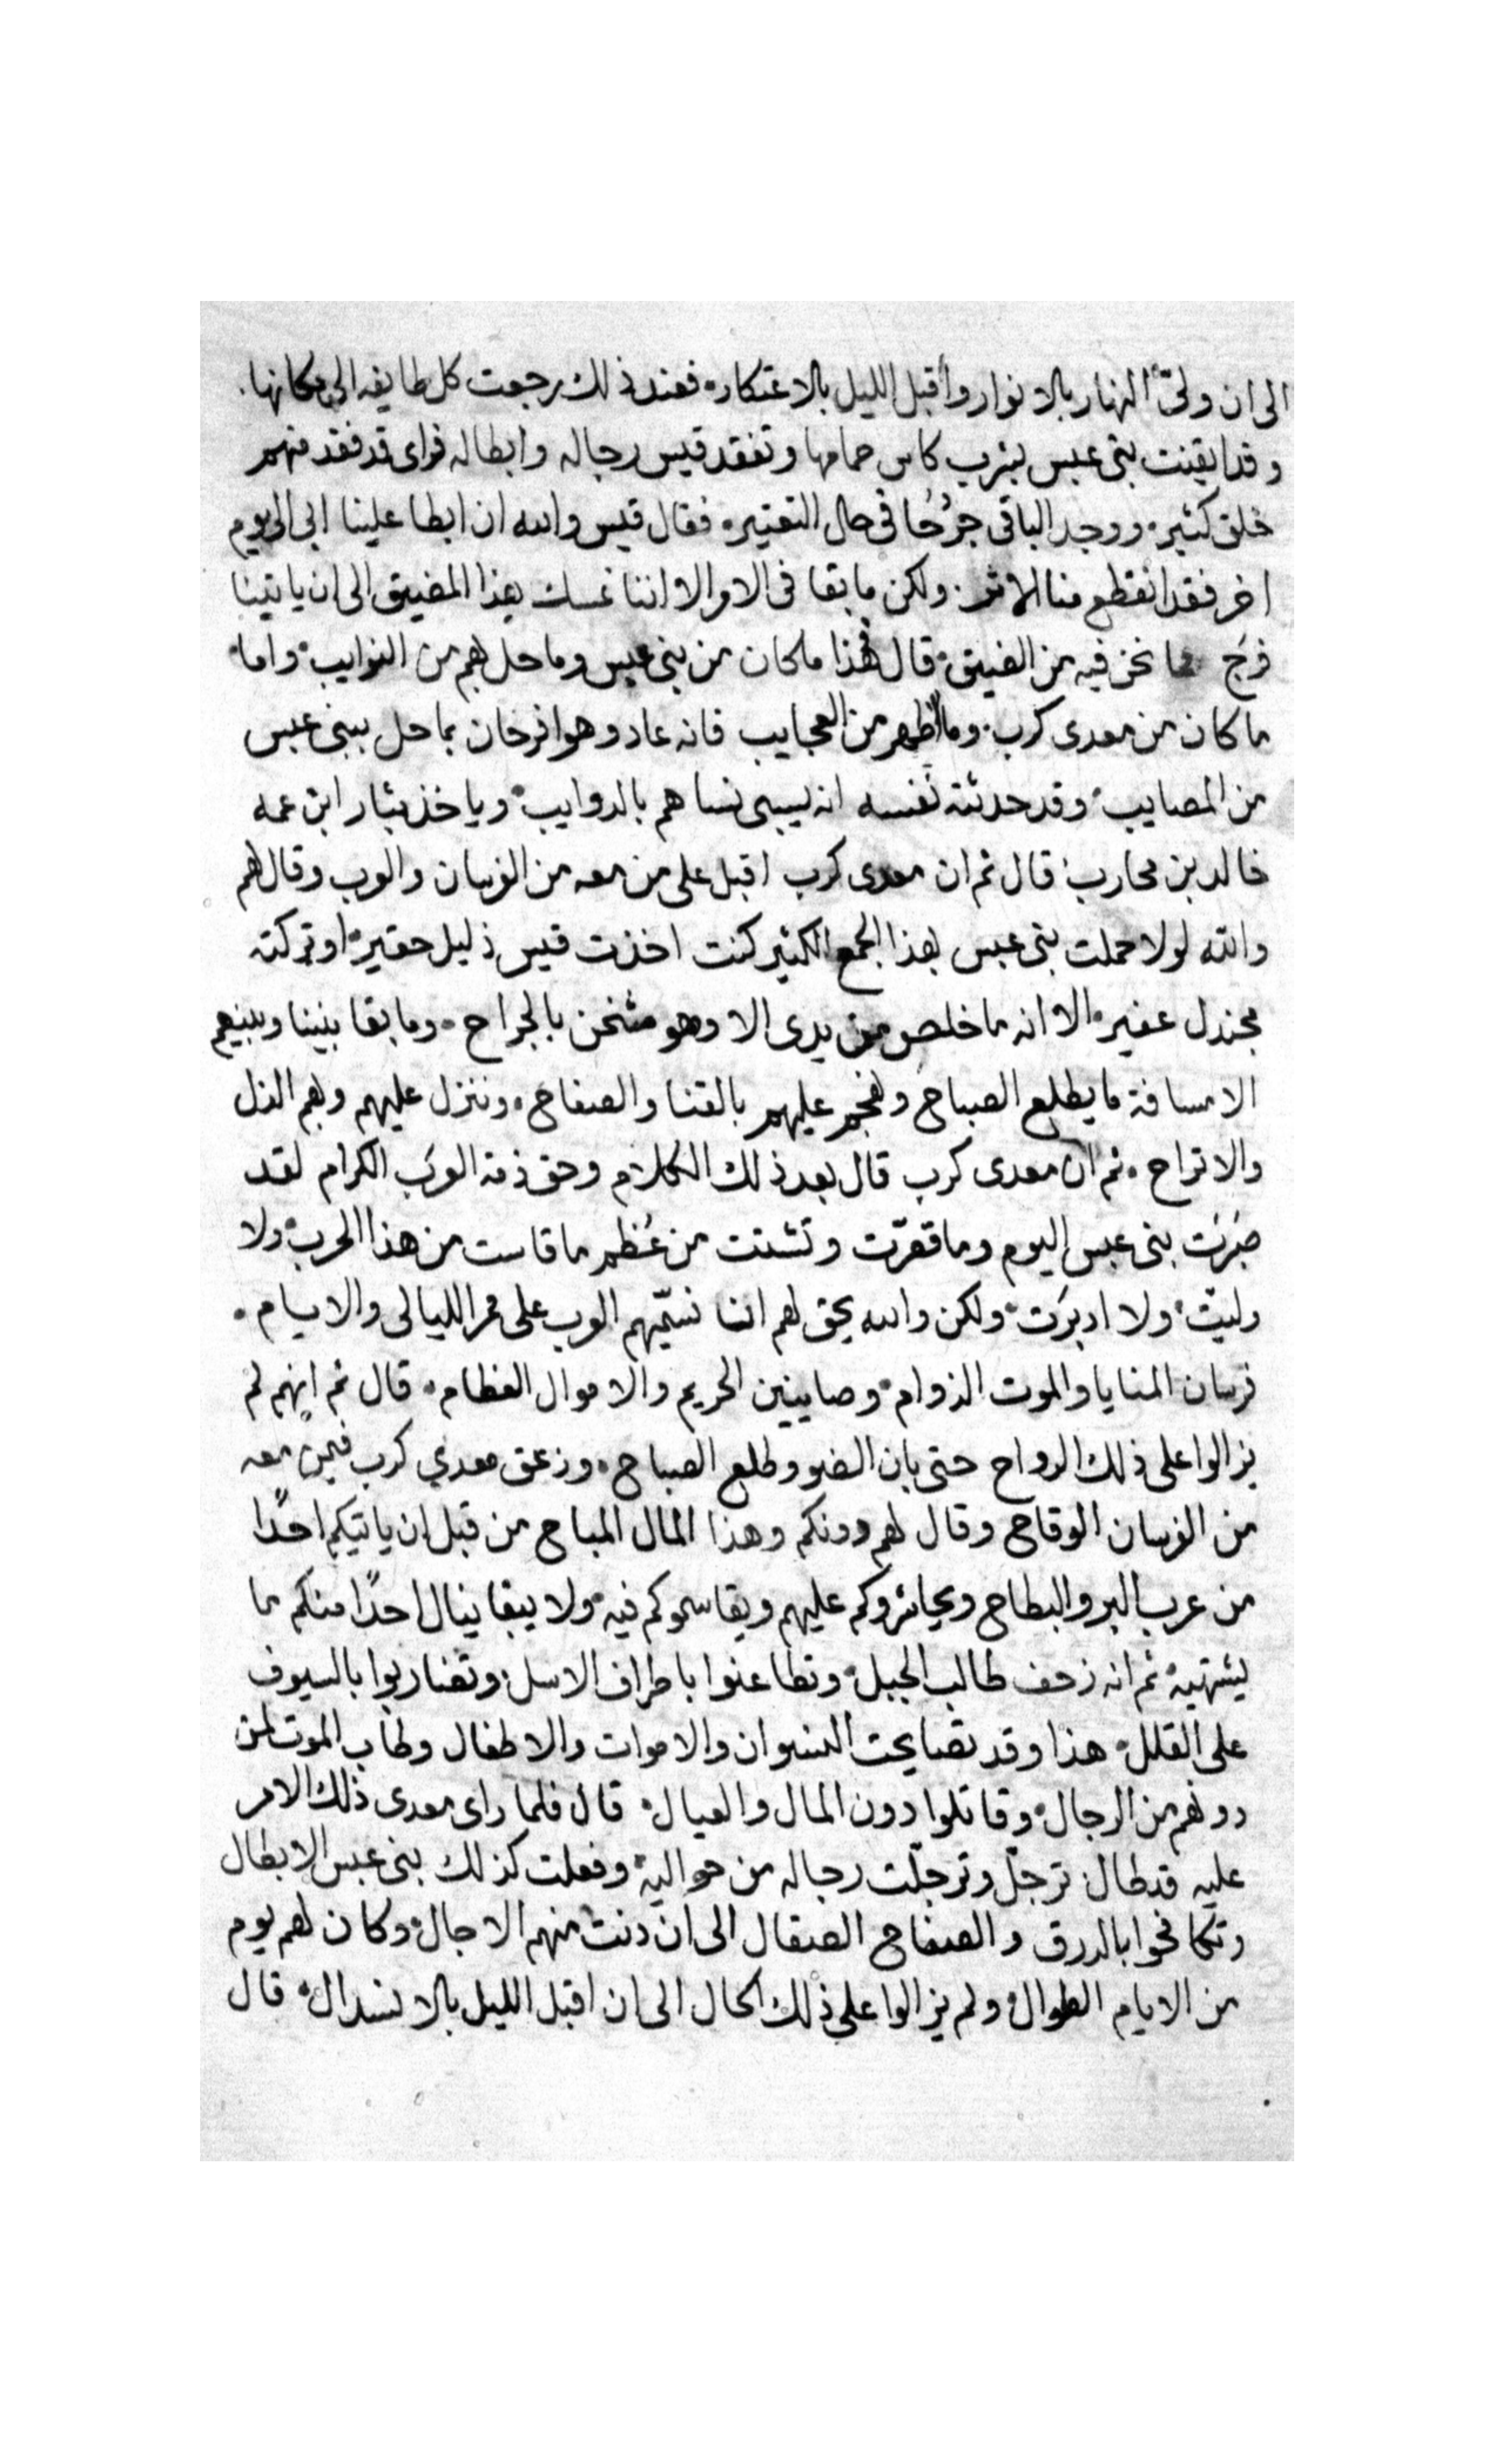 الى ان ولىّ النهار بالانوار واقبل الليل بالاعتكار، فعند ذلك رجعت كل طايفه الى مكانها.
وقد ايقنت بنى عبس بشرب كاس حمامها وتفقد قيس رجاله وابطاله فراى قد فقد منهم
خلق كثير، ووجد الباقى جرُحُا فى حال التعتير، فقال قيس والله ان ابطا علينا ابى الى يوم
اخر فقد انقطع منا الاثر. ولكن ما بقا فى الامر الا اننا نمسك هذا المضيق الى ان ياتينا
فرَج مما نحن فيه من الضيق، قال فهذا ما كان من بنى عبس وما حل بهم من النوايب، واما،
ما كان من معدى كرب. وما ظهر من العجايب فانه عاد وهوا فرحان بما حل ببنى عبس
من المصايب، وقد حدثته نفسه انه يسبى نساهم بالدوايب، وياخذ بثار ابن عمه
خالد بن محارب، قال ثم ان معدى كرب اقبل على من معه من الفرسان والعرب وقال لهم
والله لولا حملت بنى عبس بهذا الجمع الكثير كنت اخذت قيس ذليل حقير، او تركته
مجندل عفير، الا انه ما خلص من يدى الا وهو مثخن بالجراح، وما بقا بيننا وبينهم
الا مسافة ما يطلع الصباح ونهجم عليهم بالقنا والصفاح، وننزل عليهم وبهم الذل
والاتراح، ثم ان معدى كرب قال بعد ذلك الكلام وحق ذمة العرَب الكرام لقد
صَبَرَت بنى عبس اليوم وما قصّرت وتشتت من عُظم ما قاست من هذا الحرب، ولا
وليّت، ولا ادبرَت، ولكن والله يحق لهم اننا نسمّيهم العرب على ممر الليالى والايام،
فرسان المنايا والموت الزوام، وصايينين الحريم والاموال العظام، قال ثم انهم لم
يزالوا على ذلك الرواح حتى بان الضو وطلع الصباح، وزعق معدي كرب فيمن معه
من الفرسان الوقاح وقال لهم دونكم وهذا المال المباح من قبل ان ياتيكم احدًا
من عرب البر والبطاح ويحاشروكم عليهم ويقاسموكم فيه، ولا يبقا ينال احدًا منكم ما
يشتهيه، ثم انه زحف طالب الجبل، وتطاعنوا باطراف الاسل، وتضاربوا بالسيوف
على القلل، هذا وقد تصايحت النسوان والاموات والاطفال وطاب الموت لمن
دونهم من الرجال، وقاتلوا دون المال والعيال، قال فلما راى معدى ذلك الامر
عليه قد طال ترجّل وترجلّت رجاله من حواليه، وفعلت كذلك بنى عبس الابطال
وتكافحوا بالدرق والصفاح الصقال الى ان دنت منهم الاجال، وكان لهم يوم
من الايام الطوال، ولم يزالوا على ذلك الحال الى ان اقبل الليل بالانسدال، قال